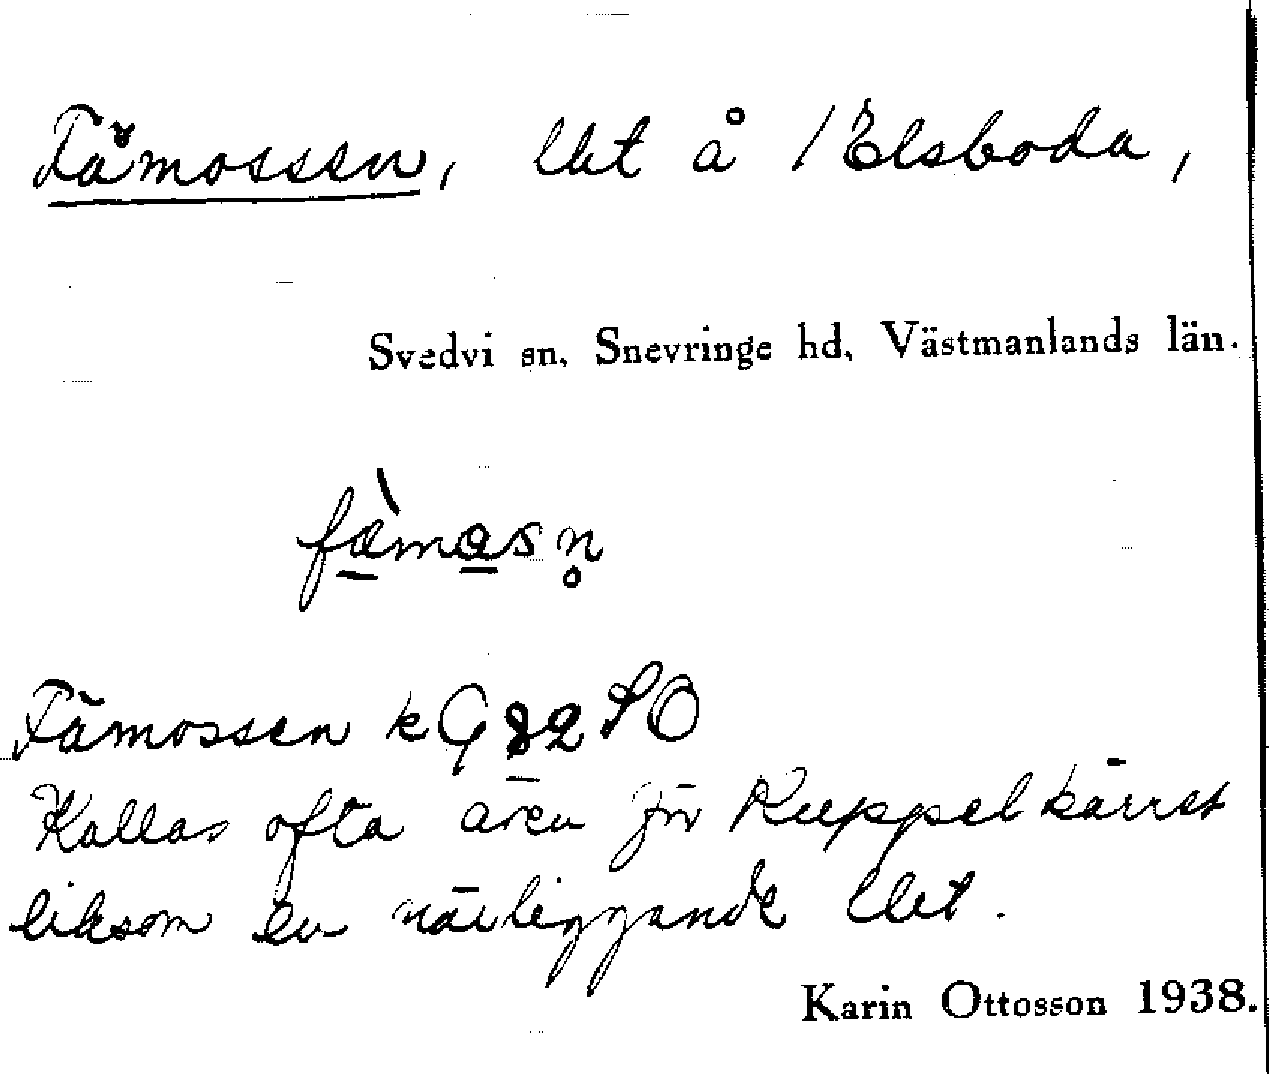 Fämossen, lht å 1 Elsboda,
Svedvi sn, Snevringe hd, Västmanlands län.
fæ̀masn̥
Fämossen k G 82 SO
Kallas ofta även för Kuppelkärret
liksom en närliggande lht.
Karin Ottosson 1938.